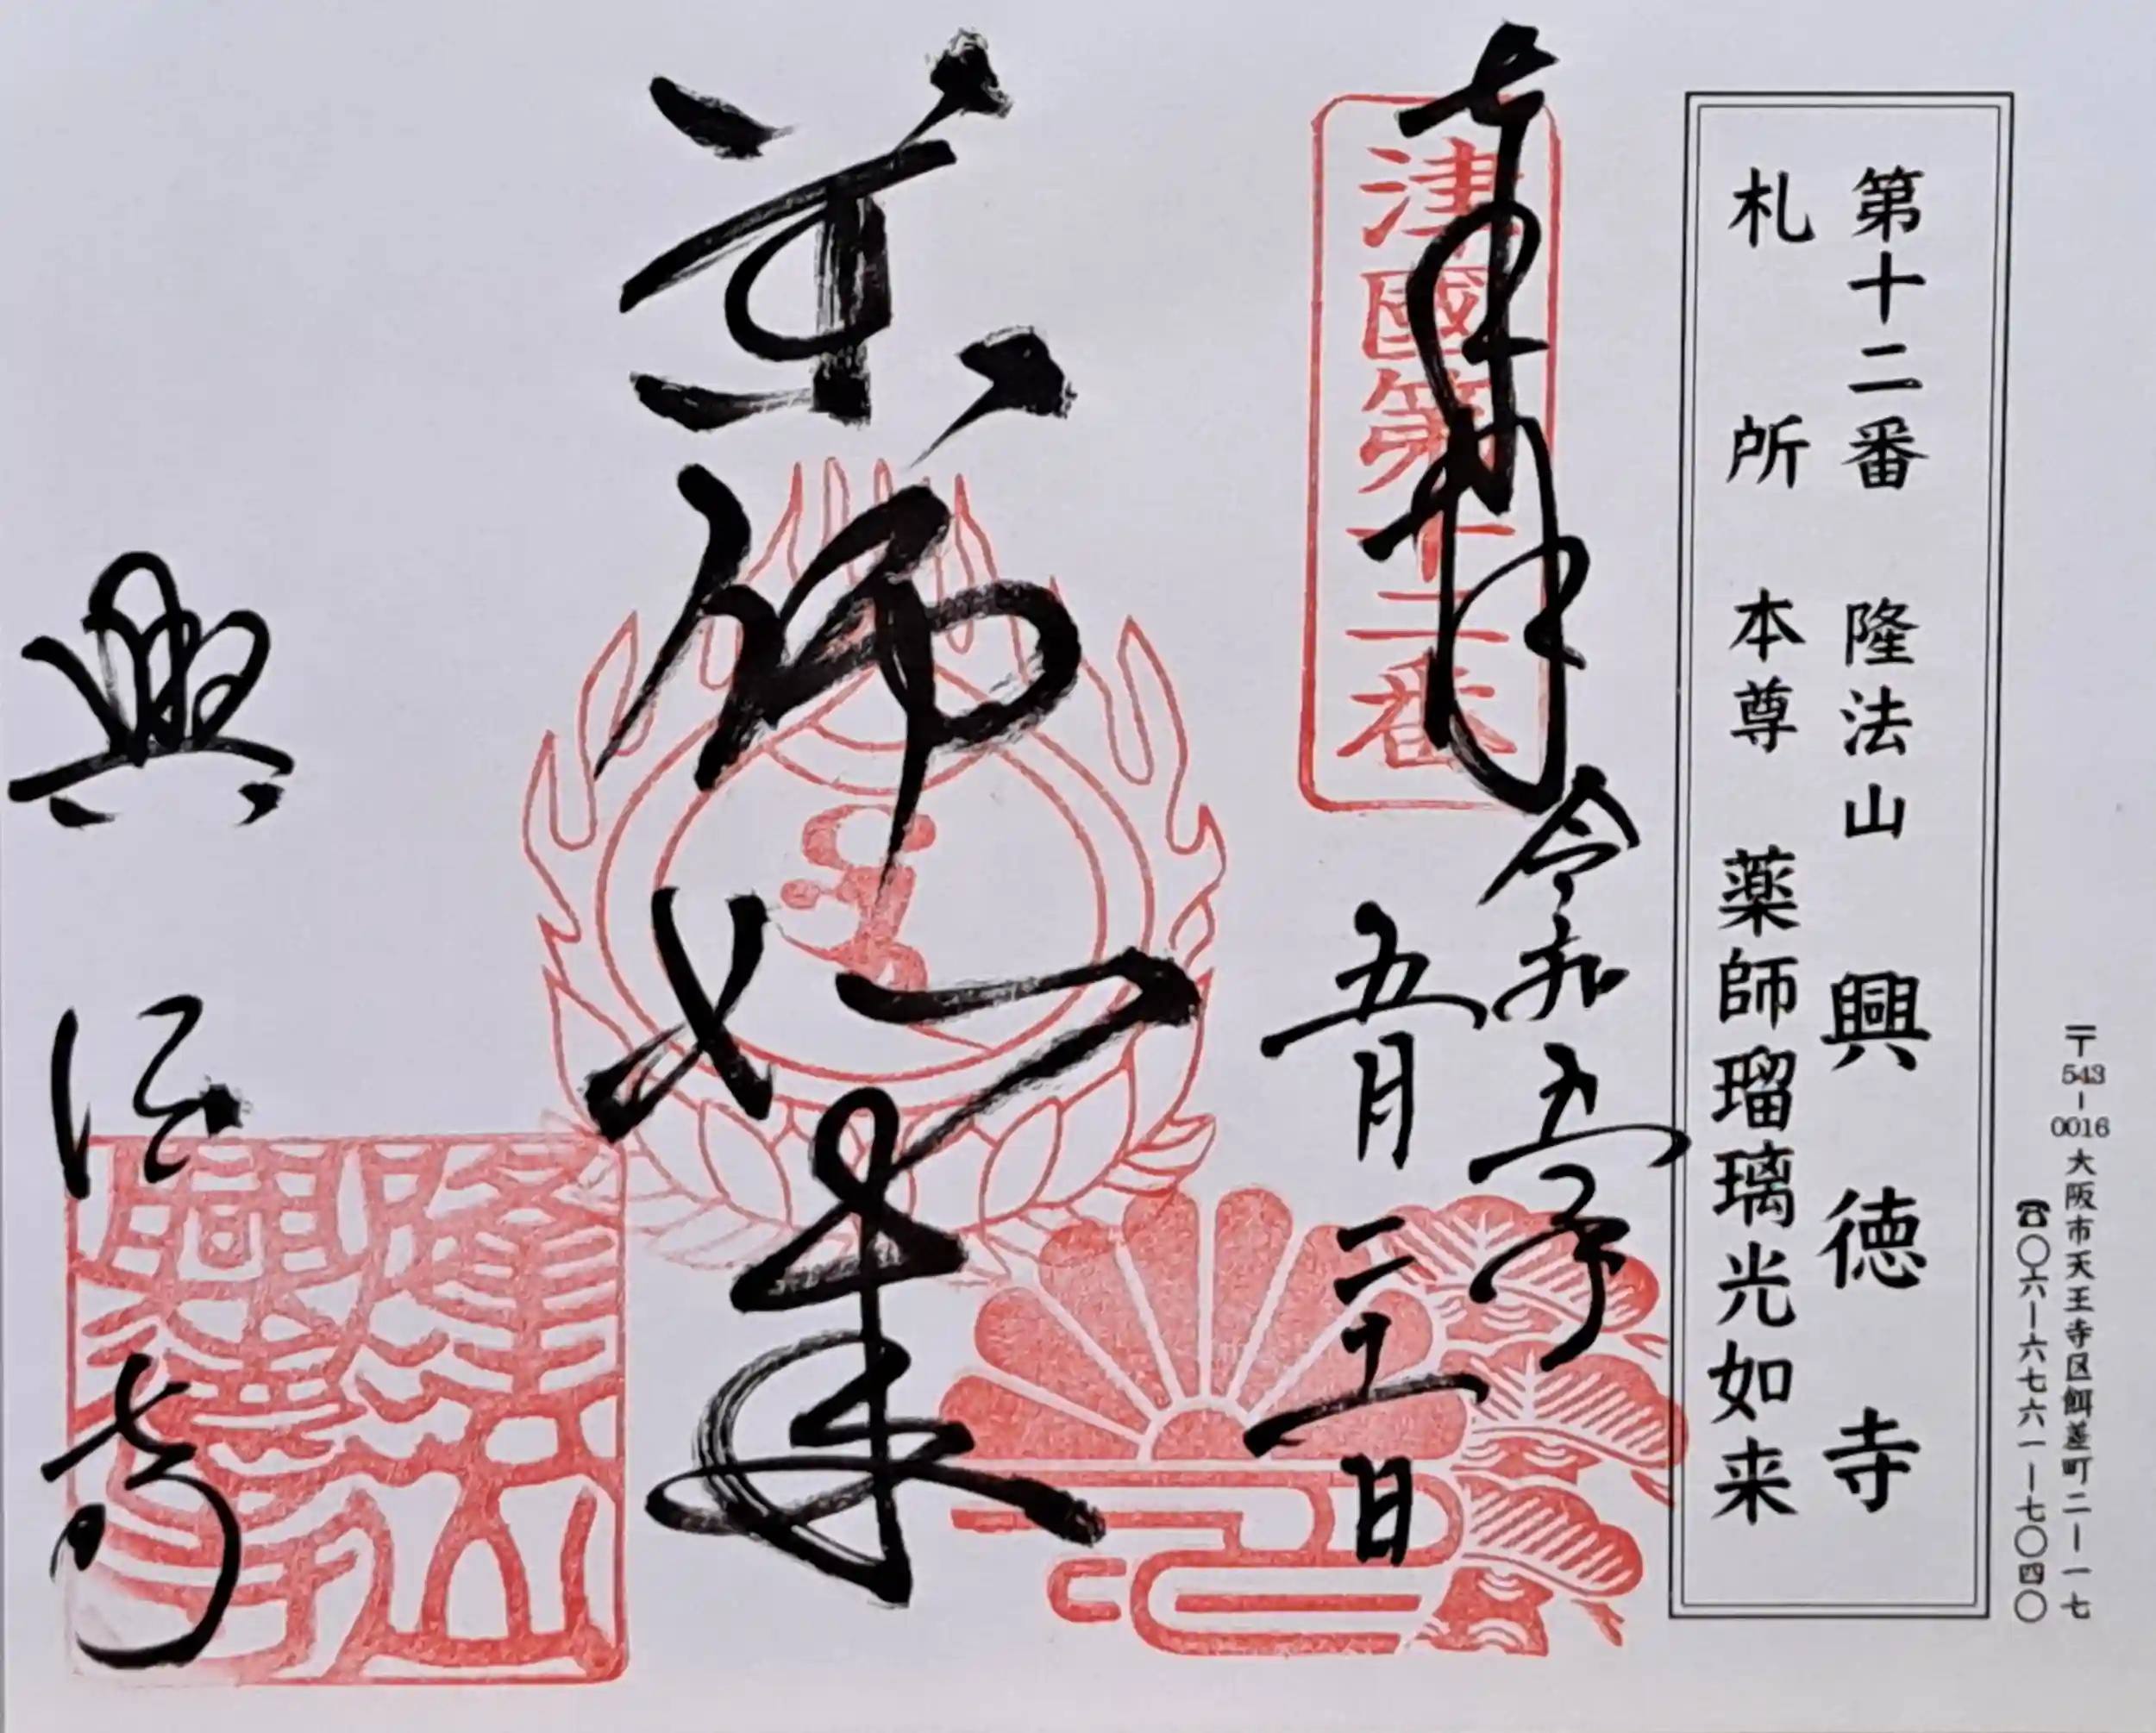 〒543-0016 大阪市天王寺区餌差町二ー一七
☎〇六ー六七六一ー七〇四〇
第十二番 隆法山 興徳寺
札所 本尊 薬師瑠璃光如来
奉拝
令和五年
津國第十二番
五月二十一日
薬師如来
隆法山
興徳寺
興徳寺